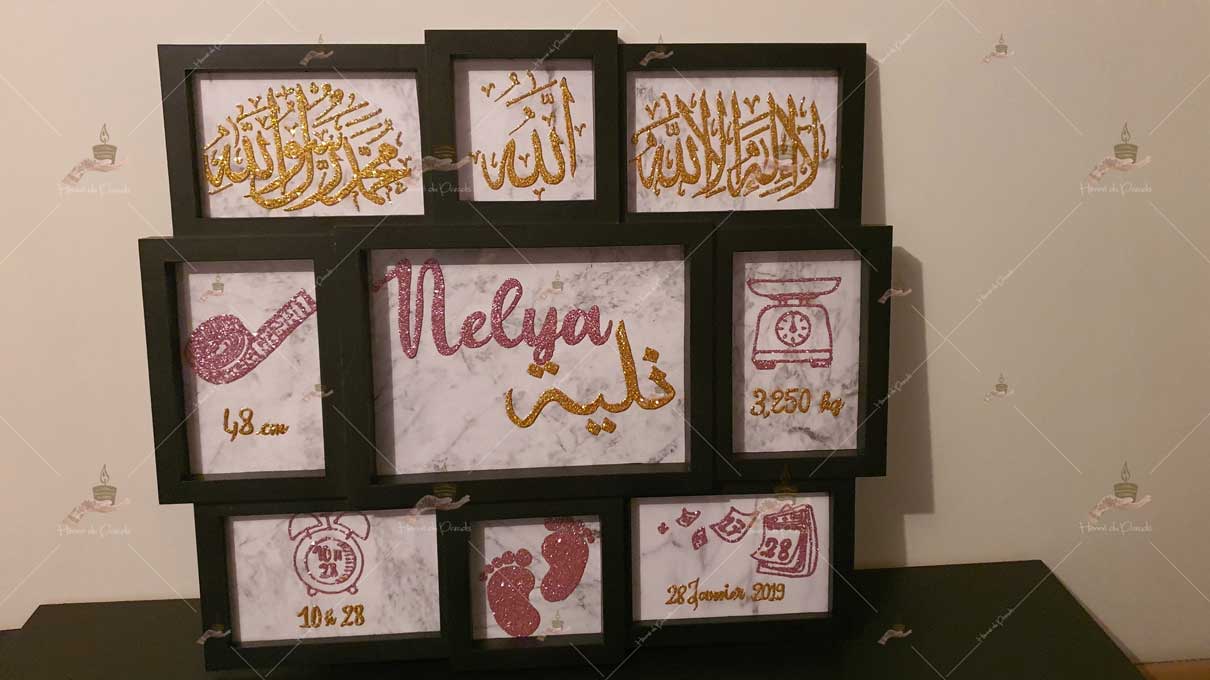 لا إله إلا الله
الله
محمد رسول الله
48 cm
Nelya
نلية
3,250 kg
10 H
28
10 h 28
28
28 Janvier 2019